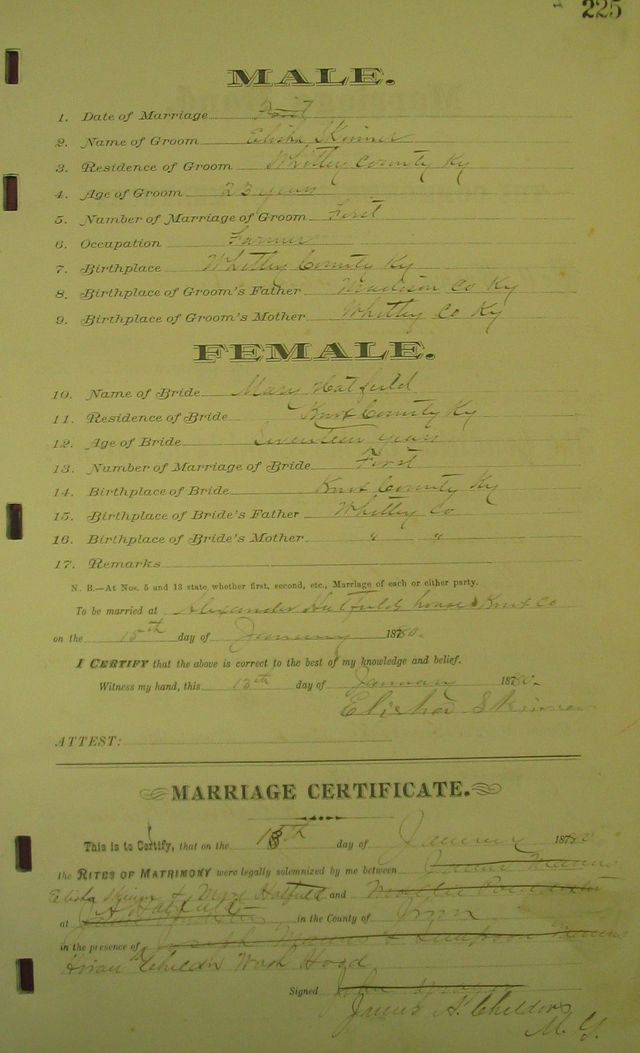 225
MALE.
1. Date of Marriage First
2. Name of Groom Elisha Skinner
3. Residence of Groom Whitley County Ky
4. Age of Groom 23 years
5. Number of Marriage of Groom First
6. Occupation Farmer
7. Birthplace Whitley County Ky
8. Birthplace of Groom's Father Madison Co Ky
9. Birthplace of Groom's Mother Whitley Co Ky
FEMALE.
10. Name of Bride Mary Hatfield
11. Residence of Bride Knox County Ky
12. Age of Bride Seventeen years
13. Number of Marriage of Bride First
14. Birthplace of Bride Knox County Ky
15. Birthplace of Bride's Father Whitley Co
16. Birthplace of Bride's Mother " "
17. Remarks
N. B.—At Nos. 5 and 13 state, whether first, second, etc., Marriage of each or either party.
To be married at Alexander Hatfields house Knox Co
on the 15th day of January 1880.
I CERTIFY that the above is correct to the best of my knowledge and belief.
Witness my hand, this 13th day of January 1880
Elisha Skinner
ATTEST:
MARRIAGE CERTIFICATE.
This is to Certify, that on the 15th day of January 1880
the RITES OF MATRIMONY were legally solemnized by me between
Elisha Skinner & Mary Hatfield and
at A Hatfield in the County of Knox
in the presence of Joseph &
Hiram Childrs Wash Hood
Signed John
James A. Childers
M. G.